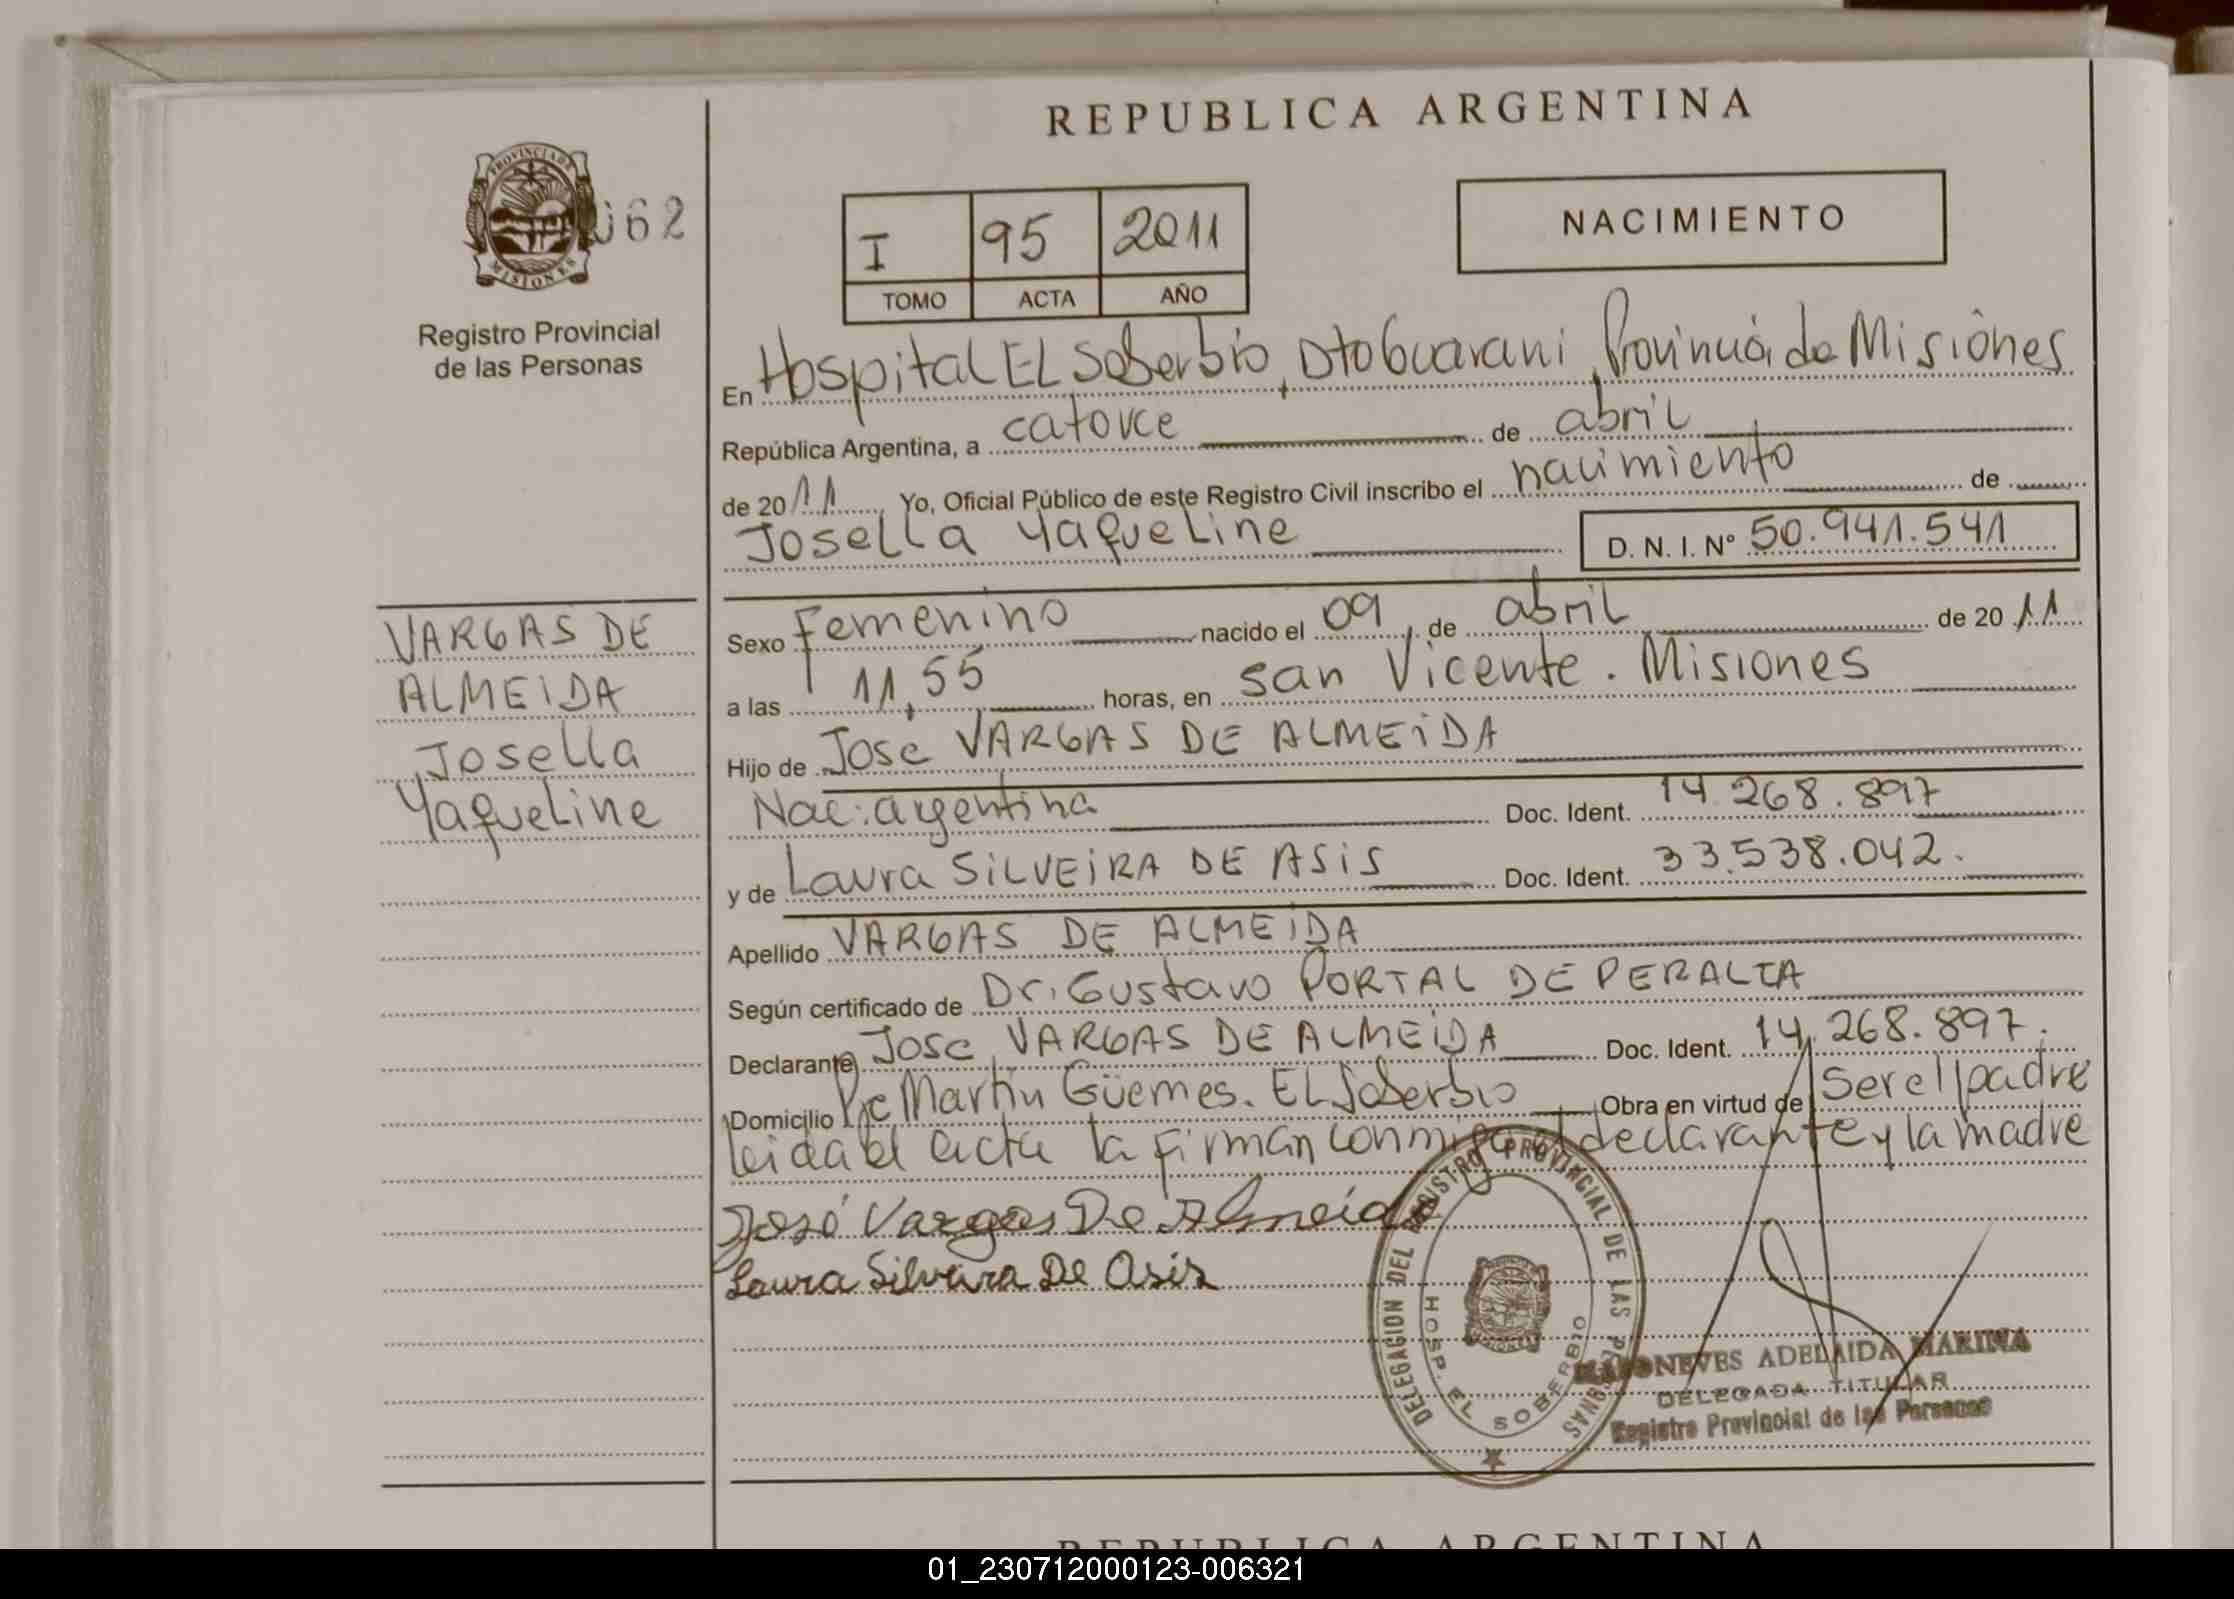 REPUBLICA ARGENTINA
PROVINCIA DE MISIONES
062
Registro Provincial
de las Personas
I 95 2011
TOMO ACTA AÑO
NACIMIENTO
En Hospital EL Soberbio, Dto Guarani, Provincia de Misiones
República Argentina, a catorce de abril
de 2011 Yo, Oficial Público de este Registro Civil inscribo el nacimiento de
Josella Yaqueline D. N. I. Nº 50.941.541
VARGAS DE
ALMEIDA
Josella
Yaqueline
Sexo Femenino nacido el 09 de abril de 2011
a las 11,55 horas, en San Vicente. Misiones
Hijo de Jose VARGAS DE ALMEiDA
Nac: argentina Doc. Ident. 14.268.897
y de Laura SiLVEiRA DE ASiS Doc. Ident. 33.538.042.
Apellido VARGAS DE ALMEiDA
Según certificado de Dr. Gustavo PORTAL DE PERALTA
Declarante Jose VARGAS DE ALMEiDA Doc. Ident. 14.268.897.
Domicilio Pje Martin Güemes. EL Soberbio Obra en virtud de ser el padre
leida el acta la firman conmigo el declarante y la madre
José Vargas De Almeida
Laura Silveira De Asis
DELEGACION DEL REGISTRO PROVINCIAL DE LAS PERSONAS
HOSP. EL SOBERBIO
ADELAIDA MARINA
DELEGADA TITULAR
Registro Provincial de las Personas
REPUBLICA ARGENTINA
01_230712000123-006321